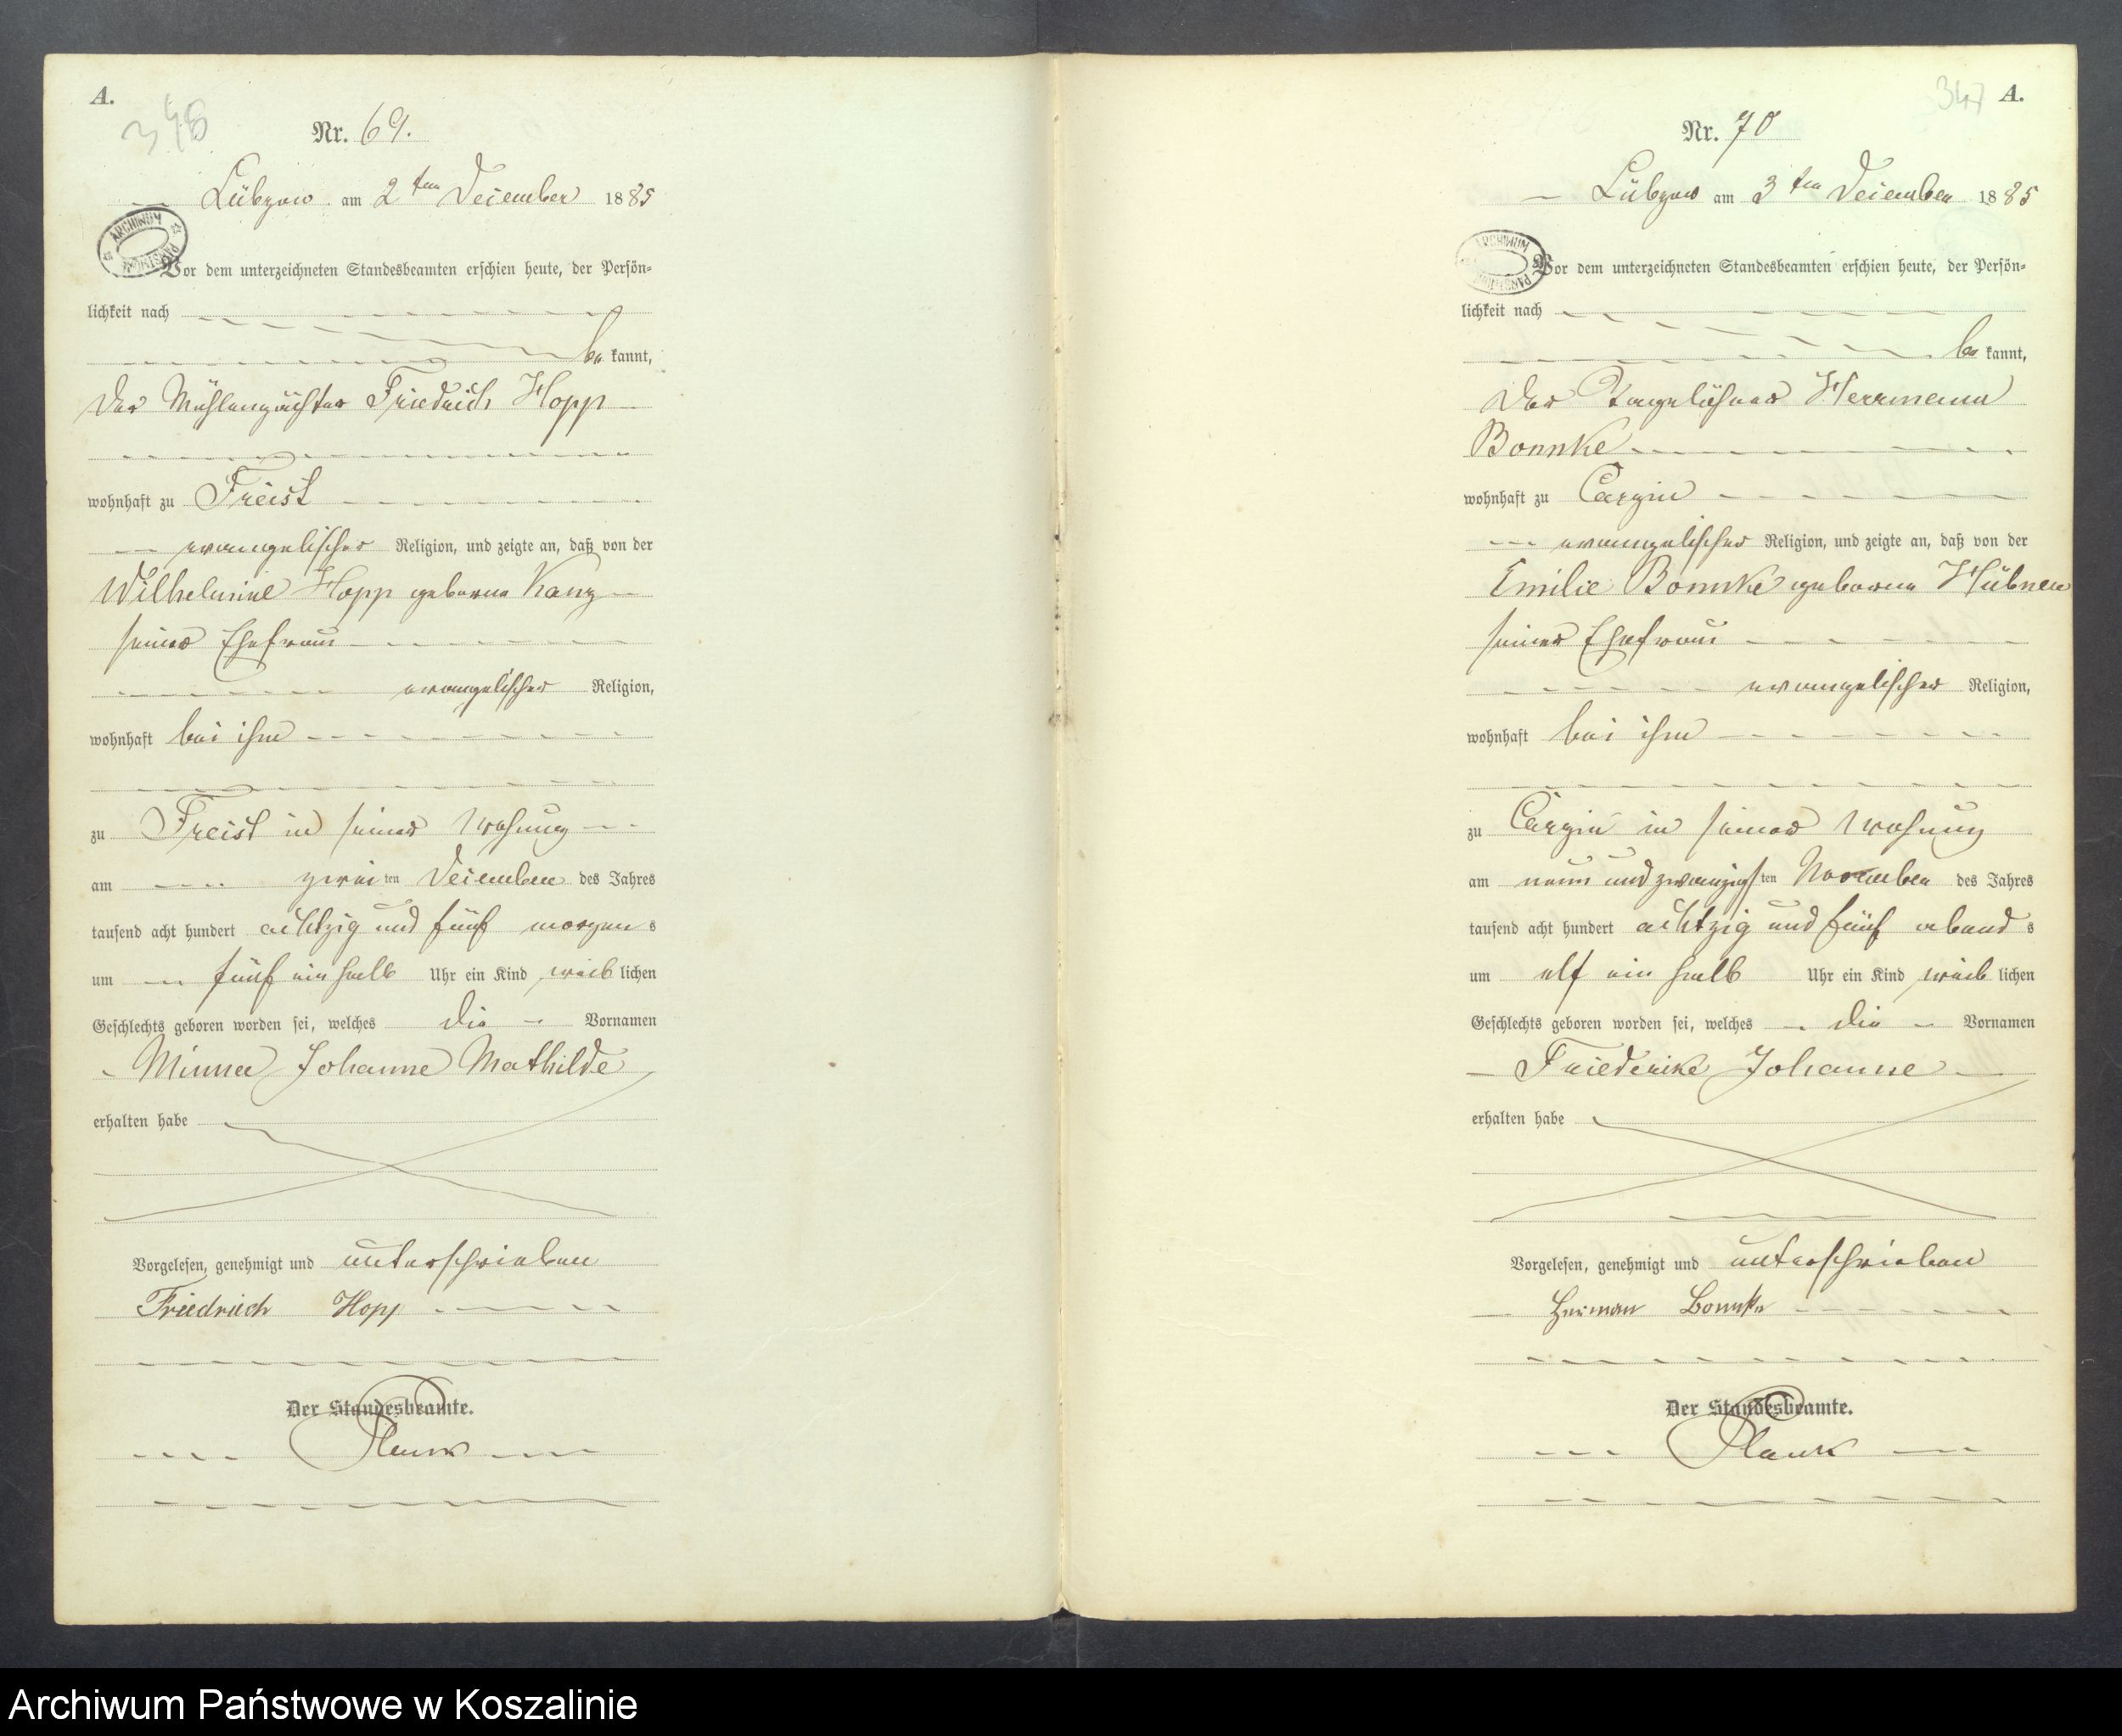 A.
346
Nr. 69.
Lübzow am 2ten Dezember 1885
ARCHIWUM
PAŃSTWOWE
Vor dem unterzeichneten Standesbeamten erschien heute, der Persön=
lichkeit nach
be kannt,
der Mühlenpächter Friedrich Hopp
wohnhaft zu Freist
evangelischer Religion, und zeigte an, daß von der
Wilhelmine Hopp geborne Kanz
seiner Ehefrau
evangelischer Religion,
wohnhaft bei ihm
zu Freist in seiner Wohnung
am zwei ten Dezember des Jahres
tausend acht hundert achtzig und fünf morgen s
um fünf ein halb Uhr ein Kind weib lichen
Geschlechts geboren worden sei, welches die Vornamen
Minna Johanne Mathilde
erhalten habe
Vorgelesen, genehmigt und unterschrieben
Friedrich Hopp
Der Standesbeamte.
Planck
347
A.
Nr. 70
Lübzow am 3ten Dezember 1885
ARCHIWUM
PAŃSTWOWE
Vor dem unterzeichneten Standesbeamten erschien heute, der Persön=
lichkeit nach
be kannt,
der Tagelöhner Herrmann
Bonnke
wohnhaft zu Carzin
evangelischer Religion, und zeigte an, daß von der
Emilie Bonnke geborne Hübner
seiner Ehefrau
evangelischer Religion,
wohnhaft bei ihm
zu Carzin in seiner Wohnung
am neun und zwanzigs ten November des Jahres
tausend acht hundert achtzig und fünf abend s
um elf ein halb Uhr ein Kind weib lichen
Geschlechts geboren worden sei, welches die Vornamen
Friederike Johanne
erhalten habe
Vorgelesen, genehmigt und unterschrieben
Herman Bonnke
Der Standesbeamte.
Planck
Archiwum Państwowe w Koszalinie